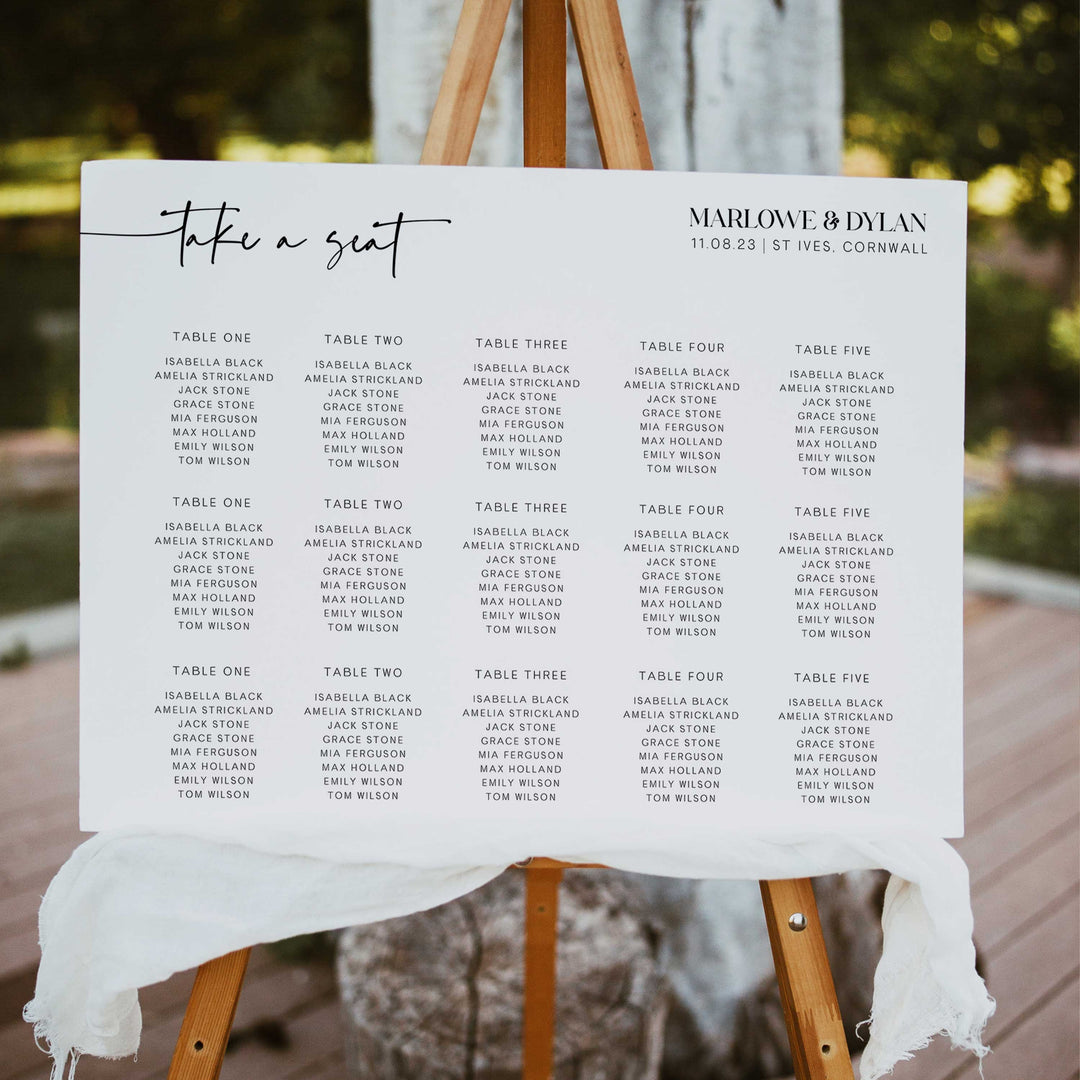 take a seat
MARLOWE & DYLAN
11.08.23 | ST IVES, CORNWALL
TABLE ONE
ISABELLA BLACK
AMELIA STRICKLAND
JACK STONE
GRACE STONE
MIA FERGUSON
MAX HOLLAND
EMILY WILSON
TOM WILSON
TABLE TWO
ISABELLA BLACK
AMELIA STRICKLAND
JACK STONE
GRACE STONE
MIA FERGUSON
MAX HOLLAND
EMILY WILSON
TOM WILSON
TABLE THREE
ISABELLA BLACK
AMELIA STRICKLAND
JACK STONE
GRACE STONE
MIA FERGUSON
MAX HOLLAND
EMILY WILSON
TOM WILSON
TABLE FOUR
ISABELLA BLACK
AMELIA STRICKLAND
JACK STONE
GRACE STONE
MIA FERGUSON
MAX HOLLAND
EMILY WILSON
TOM WILSON
TABLE FIVE
ISABELLA BLACK
AMELIA STRICKLAND
JACK STONE
GRACE STONE
MIA FERGUSON
MAX HOLLAND
EMILY WILSON
TOM WILSON
TABLE ONE
ISABELLA BLACK
AMELIA STRICKLAND
JACK STONE
GRACE STONE
MIA FERGUSON
MAX HOLLAND
EMILY WILSON
TOM WILSON
TABLE TWO
ISABELLA BLACK
AMELIA STRICKLAND
JACK STONE
GRACE STONE
MIA FERGUSON
MAX HOLLAND
EMILY WILSON
TOM WILSON
TABLE THREE
ISABELLA BLACK
AMELIA STRICKLAND
JACK STONE
GRACE STONE
MIA FERGUSON
MAX HOLLAND
EMILY WILSON
TOM WILSON
TABLE FOUR
ISABELLA BLACK
AMELIA STRICKLAND
JACK STONE
GRACE STONE
MIA FERGUSON
MAX HOLLAND
EMILY WILSON
TOM WILSON
TABLE FIVE
ISABELLA BLACK
AMELIA STRICKLAND
JACK STONE
GRACE STONE
MIA FERGUSON
MAX HOLLAND
EMILY WILSON
TOM WILSON
TABLE ONE
ISABELLA BLACK
AMELIA STRICKLAND
JACK STONE
GRACE STONE
MIA FERGUSON
MAX HOLLAND
EMILY WILSON
TOM WILSON
TABLE TWO
ISABELLA BLACK
AMELIA STRICKLAND
JACK STONE
GRACE STONE
MIA FERGUSON
MAX HOLLAND
EMILY WILSON
TOM WILSON
TABLE THREE
ISABELLA BLACK
AMELIA STRICKLAND
JACK STONE
GRACE STONE
MIA FERGUSON
MAX HOLLAND
EMILY WILSON
TOM WILSON
TABLE FOUR
ISABELLA BLACK
AMELIA STRICKLAND
JACK STONE
GRACE STONE
MIA FERGUSON
MAX HOLLAND
EMILY WILSON
TOM WILSON
TABLE FIVE
ISABELLA BLACK
AMELIA STRICKLAND
JACK STONE
GRACE STONE
MIA FERGUSON
MAX HOLLAND
EMILY WILSON
TOM WILSON